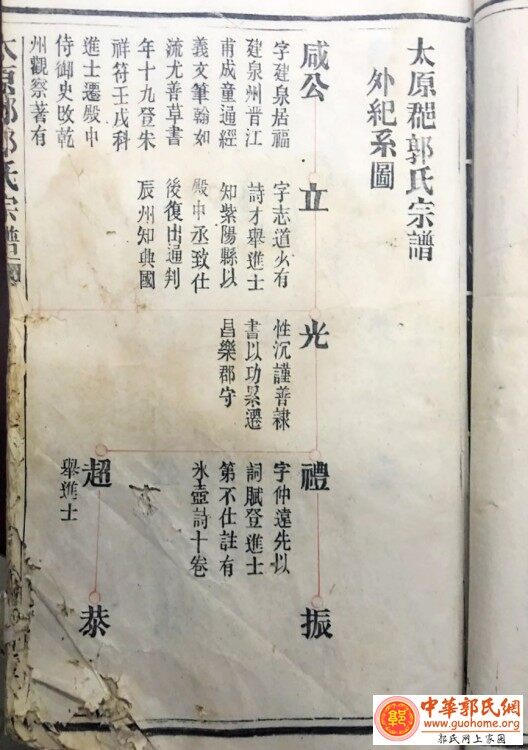 太原郡郭氏宗譜
外紀系圖
咸公
字建泉居福
建泉州晋江
甫成童通經
義文筆翰如
流尤善草書
年十九登朱
祥符壬戌科
進士遷殿中
侍御史改乾
州觀察著有
立
字志道少有
詩才舉進士
知紫陽縣以
殿中丞致仕
後復出通判
辰州知典國
光
性沉謹善隷
書以功累遷
昌樂郡守
禮
字仲遠先以
詞賦登進士
第不仕註有
氷壺詩十卷
超
舉進士
振
恭
太原郡郭氏宗譜
中華郭氏網
www.guohome.org
郭氏网上家园